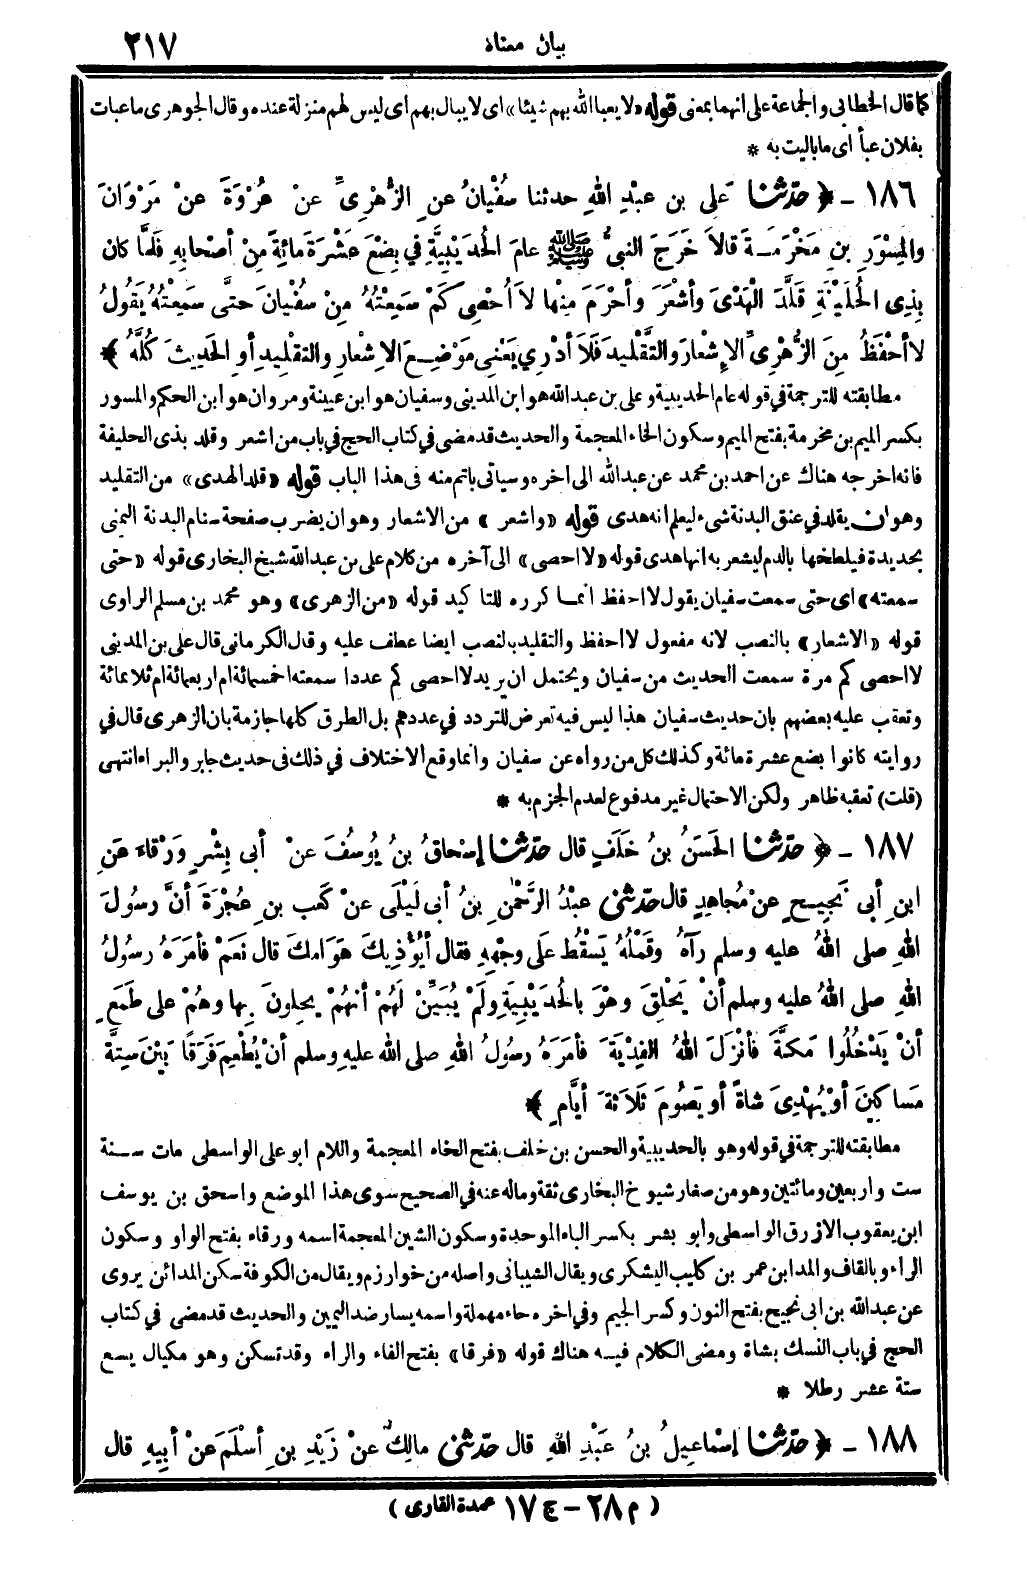 بيان معناه ٢١٧
كما قال الخطابي والجماعة على انهما بمعنى قوله «لا يعبا الله بهم شيئا» اى لا يبال بهم اى ليس لهم منزلة عنده وقال الجوهرى ما عبات
بفلان عبأ اى ما باليت به *
١٨٦ - ﴿ حدّثنا عَلى بن عبْدِ اللهِ حدثنا سفْيانُ عنِ الزُّهْرِىِّ عنْ عُرْوَةَ عنْ مَرْوَانَ
والمِسْوَرِ بنِ مَخْرَمَةَ قالاَ خَرَجَ النبىُّ ﷺ عامَ الحُدَيْبِيَّةِ في بِضْعَ عَشْرَةَ مائَةً مِنْ أصْحابِهِ فَلَمَّا كان
بِذِى الحُلَيْفَةِ قَلَّدَ الْهَدْىَ وأشْعَرَ وأحْرَمَ مِنْها لاَ اُحْصِى كَمْ سَمِعْتُهُ مِنْ سُفْيانَ حتَّى سَمِعْتُهُ يَقُولُ
لا أحْفَظُ مِنَ الزُّهْرِىِّ الإِشْعارَ والتَّقْلِيدَ فَلاَ أدْرِي يَعْنِى مَوْضِعَ الاِشْعارِ والتقلِيدِ أوِ الحَدِيثَ كُلَّهُ ﴾
مطابقته للترجمة في قوله عام الحديبية وعلى بن عبد الله هو ابن المدينى وسفيان هو ابن عيينة ومروان هو ابن الحكم والمسور
بكسر الميم بن مخرمة بفتح الميم وسكون الخاء المعجمة والحديث قد مضى في كتاب الحج في باب من اشعر وقلد بذى الحليفة
فانه اخرجه هناك عن احمد بن محمد عن عبد الله الى اخره وسيأتى باتم منه فى هذا الباب قوله «قلد الهدى» من التقليد
وهو ان يقلد في عنق البدنة شىء ليعلم انه هدى قوله «واشعر» من الاشعار وهو ان يضرب صفحة سنام البدنة اليمنى
بحديدة فيلطخها بالدم ليشعر به انها هدى قوله «لا احصى» الى آخره من كلام على بن عبد الله شيخ البخارى قوله «حتى
سمعته» اى حتى سمعت سفيان يقول لا احفظ انما كرره للتاكيد قوله «من الزهرى» وهو محمد بن مسلم الراوى
قوله «الاشعار» بالنصب لانه مفعول لا احفظ والتقليد بالنصب ايضا عطف عليه وقال الكرمانى قال على بن المدينى
لا احصى كم مرة سمعت الحديث من سفيان ويحتمل ان يريد لا احصى كم عددا سمعته اخمسمائة ام اربعمائة ام ثلاثمائة
وتعقب عليه بعضهم بان حديث سفيان هذا ليس فيه تعرض للتردد في عددهم بل الطرق كلها جازمة بان الزهرى قال في
روايته كانوا بضع عشرة مائة وكذلك كل من رواه عن سفيان وانما وقع الاختلاف في ذلك فى حديث جابر والبراء انتهى
(قلت) تعقبه ظاهر ولكن الاحتمال غير مدفوع لعدم الجزم به *
١٨٧ - ﴿ حدّثنا الحَسَنُ بنُ خَلَفٍ قال حدّثنا إسْحاقُ بنُ يُوسُفَ عنْ أبى بِشْرٍ وَرْقاءَ عَنِ
ابنِ أبى نَجِيحٍ عنْ مُجاهِدٍ قال حدّثنى عبْدُ الرَّحْمٰنِ بنُ أبى لَيْلَى عنْ كَعْبِ بنِ عُجْرَةَ أنَّ رسُولَ
اللهِ صلى اللهُ عليه وسلم رآهُ وقَمْلُهُ يَسْقُطُ علَى وجْهِهِ فقال أيُؤْذِيكَ هَوَامُكَ قال نَعَمْ فأمَرَهُ رسولُ
اللهِ صلى اللهُ عليه وسلم أنْ يَحْلِقَ وهْوَ بالحُدَيْبِيَةِ ولَمْ يُبَيِّنْ لَهُمْ أنَّهُمْ يحِلونَ بِها وهُمْ على طَمَعٍ
أنْ يَدْخُلُوا مَكَّةَ فأنْزَلَ اللهُ الفِدْيَةَ فأمَرَهُ رسُولُ اللهِ صلى الله عليه وسلم أنْ يُطْعِمَ فَرَقًا بَيْنَ سِتَّةَ
مَساكِينَ أوْ يُهْدِىَ شاةً أو يَصُومَ ثَلاَثَةَ أيَّامٍ ﴾
مطابقته للترجمة في قوله وهو بالحديبية والحسن بن خلف بفتح الخاء المعجمة واللام ابو على الواسطى مات سنة
ست واربعين ومائتين وهو من صغار شيوخ البخارى ثقة وما له عنه في الصحيح سوى هذا الموضع واسحق بن يوسف
ابن يعقوب الازرق الواسطى وابو بشر بكسر الباء الموحدة وسكون الشين المعجمة اسمه ورقاء بفتح الواو وسكون
الراء وبالقاف والمد ابن عمر بن كليب اليشكرى ويقال الشيبانى واصله من خوارزم ويقال من الكوفة سكن المدائن يروى
عن عبد الله بن ابى نجيح بفتح النون وكسر الجيم وفي اخره حاء مهملة واسمه يسار ضد اليمين والحديث قد مضى في كتاب
الحج في باب النسك بشاة ومضى الكلام فيه هناك قوله «فرقا» بفتح الفاء والراء وقد تسكن وهو مكيال يسع
ستة عشر رطلا *
١٨٨ - ﴿ حدّثنا إسْماعِيلُ بنُ عَبْدِ اللهِ قال حدّثنى مالِكٌ عنْ زَيْدِ بنِ أسْلَمَ عنْ أبِيهِ قال
(م ٢٨ - ١٧٤ عمدة القارى)